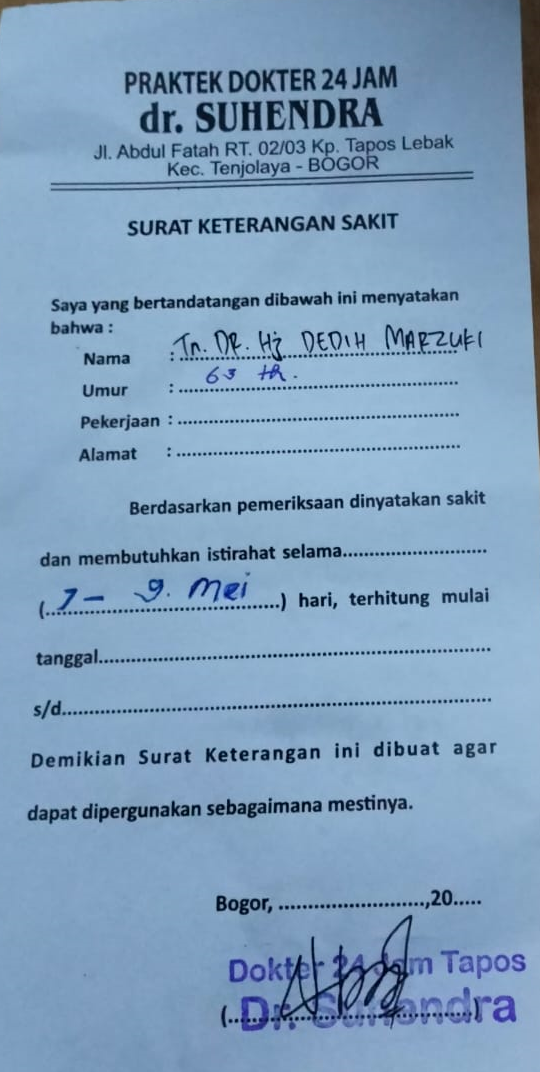 PRAKTEK DOKTER 24 JAM
dr. SUHENDRA
Jl. Abdul Fatah RT. 02/03 Kp. Tapos Lebak
Kec. Tenjolaya - BOGOR
SURAT KETERANGAN SAKIT
Saya yang bertandatangan dibawah ini menyatakan
bahwa :
Nama : Tn. DR. Hj DEDIH MARZUKI
Umur : 63 th.
Pekerjaan : ........................................................
Alamat : ........................................................
Berdasarkan pemeriksaan dinyatakan sakit
dan membutuhkan istirahat selama............................
(..7 - 9. Mei......) hari, terhitung mulai
tanggal........................................................................
s/d..............................................................................
Demikian Surat Keterangan ini dibuat agar
dapat dipergunakan sebagaimana mestinya.
Bogor, ..........................,20.....
Dokter 24 Jam Tapos
(..Dr. Suhendra..)